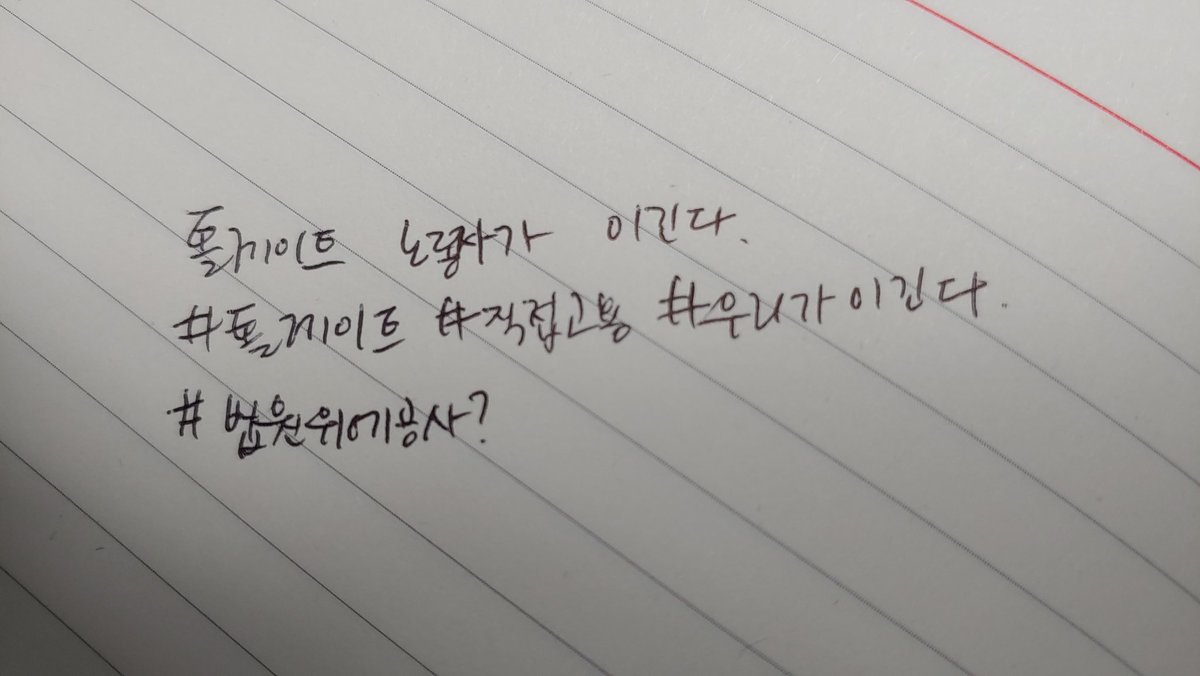 톨게이트 노동자가 이긴다.
#톨게이트 #직접고용 #우리가이긴다.
#법원위에공사?